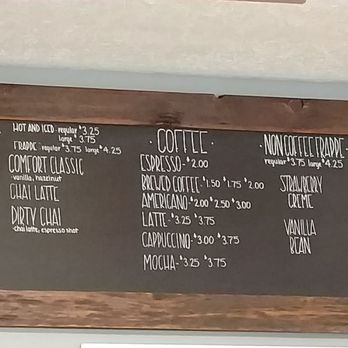 HOT AND ICED - regular $3.25
large $3.75
FRAPPE - regular $3.75 large $4.25
COMFORT CLASSIC
- vanilla, hazelnut
CHAI LATTE
DIRTY CHAI
- chai latte, espresso shot
· COFFEE ·
ESPRESSO - $2.00
BREWED COFFEE - $1.50 $1.75 $2.00
AMERICANO - $2.00 $2.50 $3.00
LATTE - $3.25 $3.75
CAPPUCCINO - $3.00 $3.75
MOCHA - $3.25 $3.75
· NON COFFEE FRAPPE ·
regular $3.75 large $4.25
STRAWBERRY
CREME
VANILLA
BEAN